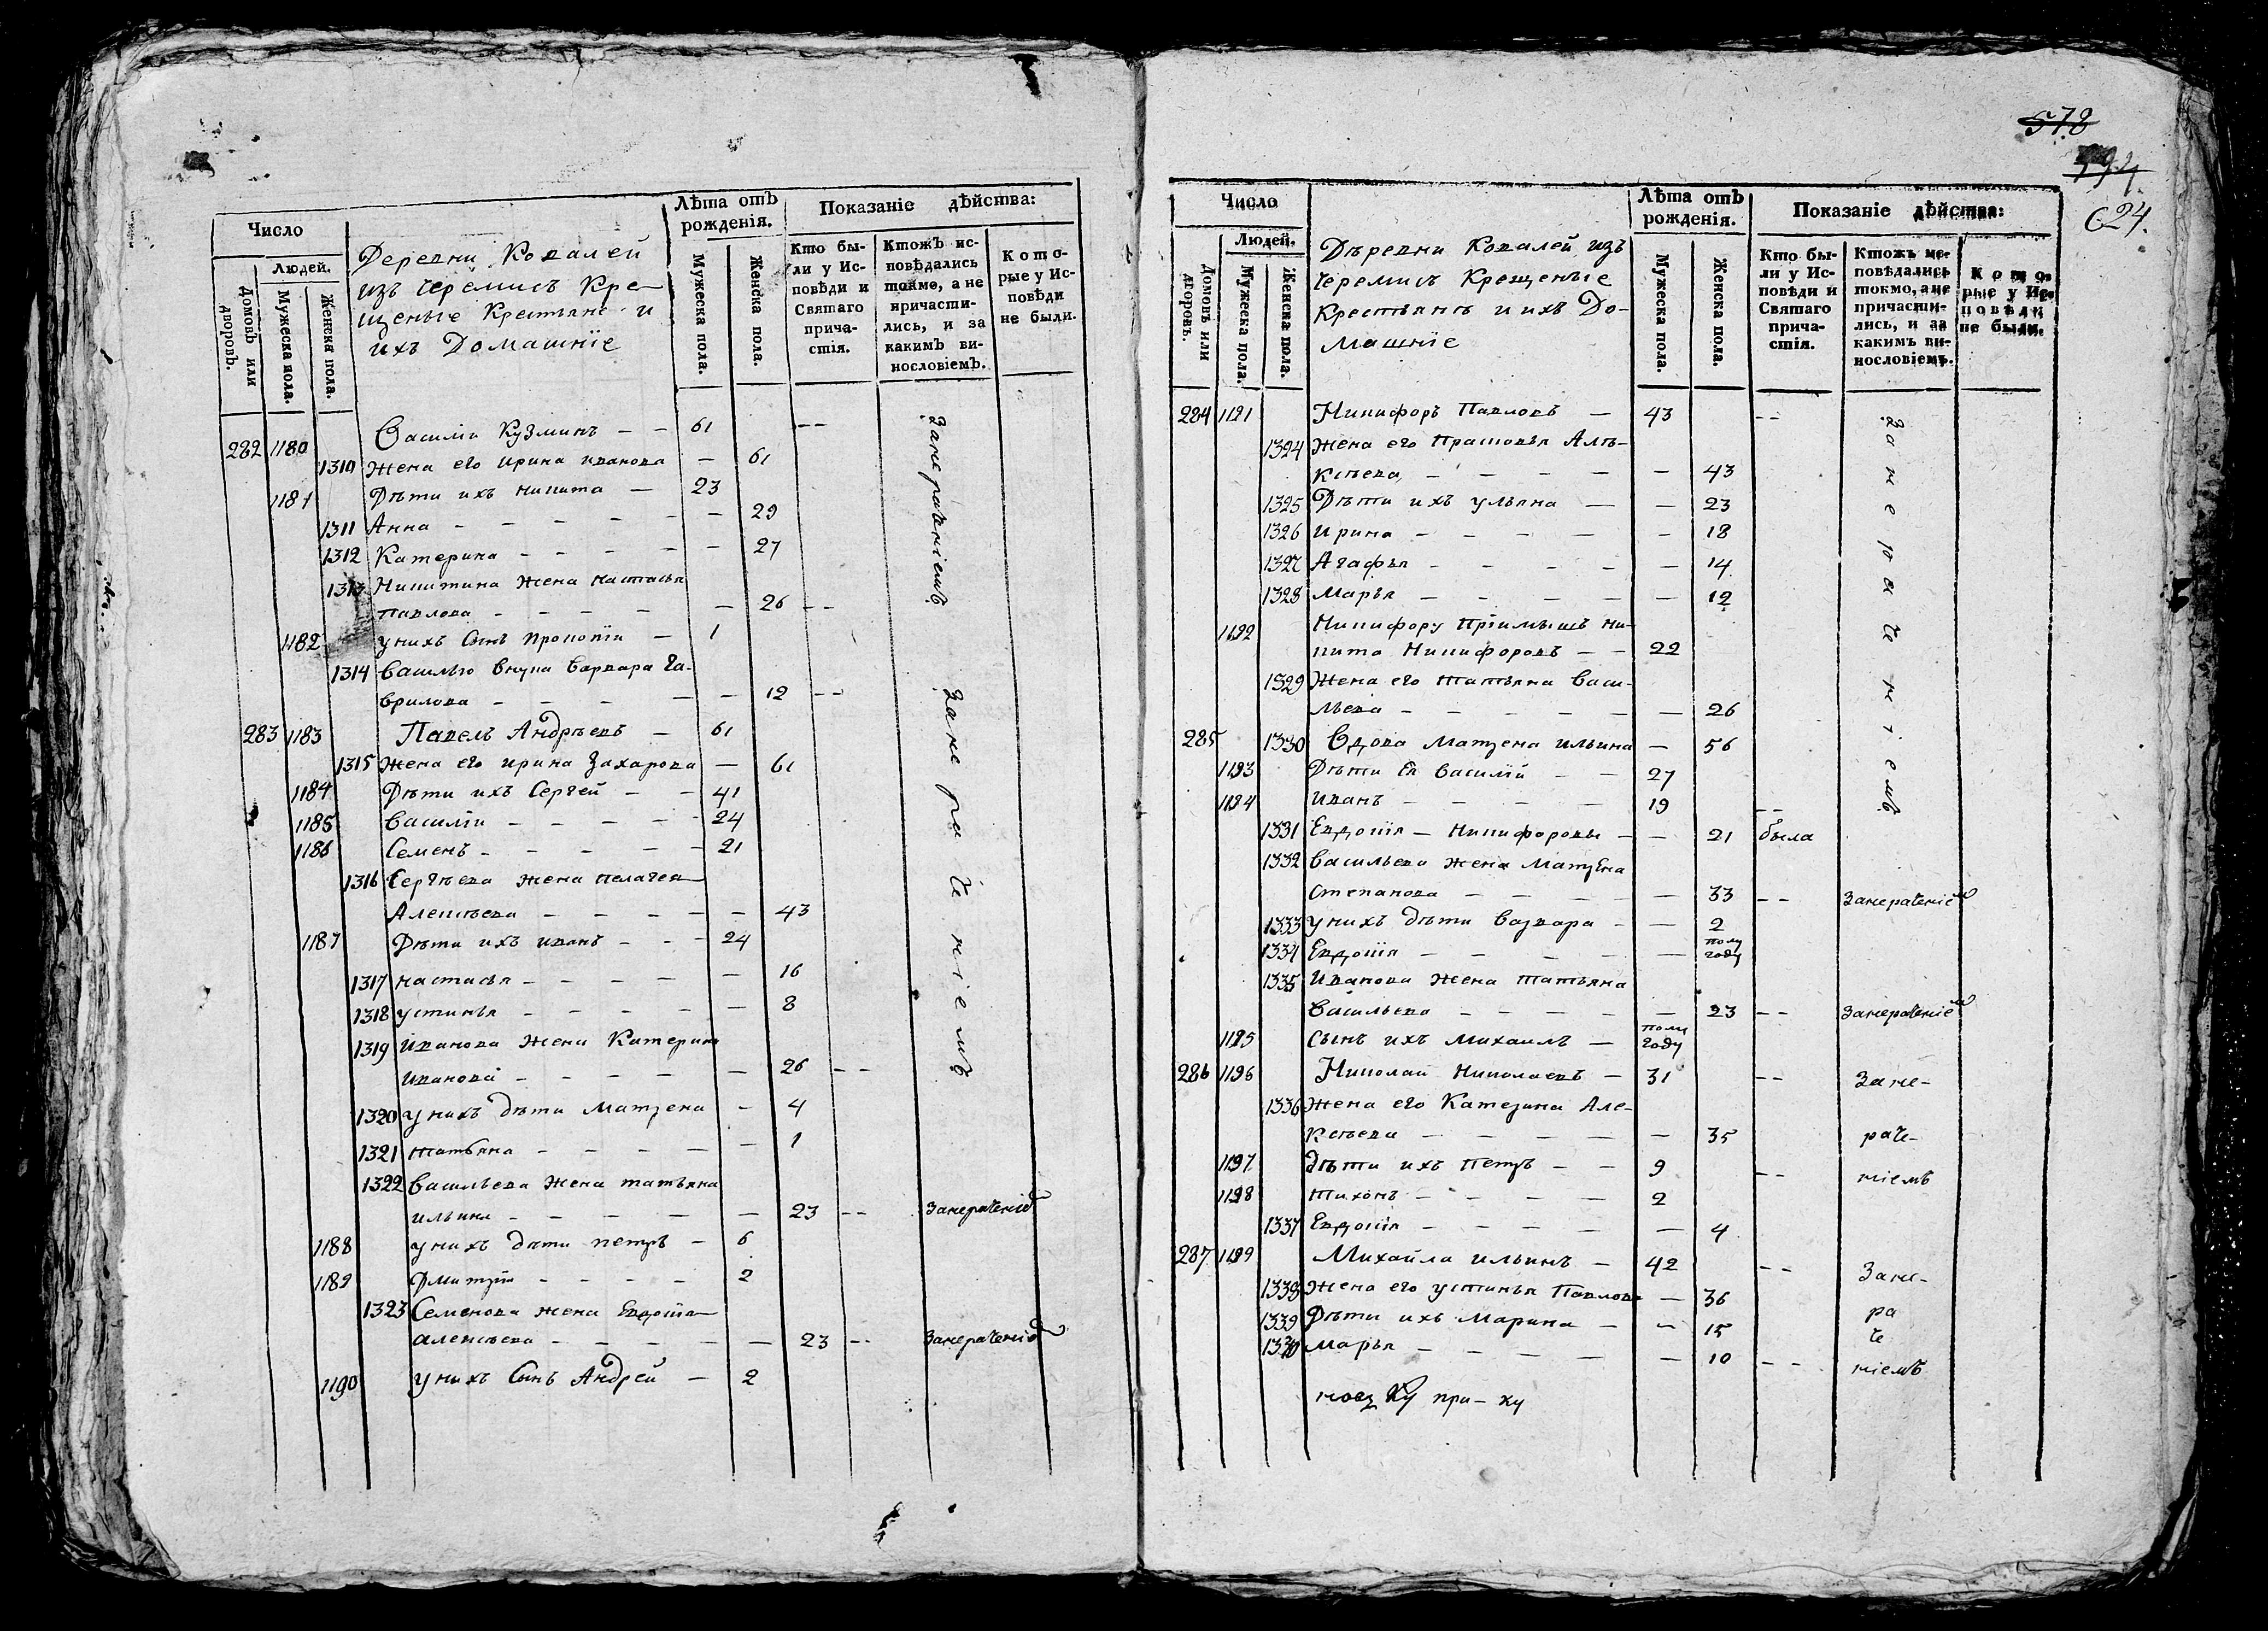 Число
Лѣта отъ рожденія.
Показаніе дѣйства:
Людей.
Домовъ или дворовъ.
Мужеска пола.
Женска пола.
Деревни Ковалей
изъ Черемисъ Кре-
щеные Крестьяне и
ихъ Домашніе
Мужеска пола.
Женска пола.
Кто бы-
ли у Ис-
повѣди и
Святаго
прича-
стія.
Ктожъ ис-
повѣдались
токмо, а не
причасти-
лись, и за
какимъ ви-
нословіемъ.
Кото-
рые у Ис-
повѣди
не были.
282 1180 Василіи Кузминъ – – 61 --
1310 Жена его Ирина Иванова – 61
1181 Дѣти ихъ Никита – 23
1311 Анна – – – – – – 29
1312 Катерина – – – – – 27
1313 Никитина Жена Настасья
Павлова – – – – – 26 --
1182 у нихъ Сынъ Прокопіи – 1
1314 Василью Внука Варвара Га-
врилова – – – – – 12 --
занераченіемъ
283 1183 Павелъ Андрѣевъ – 61
1315 Жена его Ирина Захарова – 61
1184 Дѣти ихъ Сергей – – 41
1185 Василіи – – – – – 24
1186 Семенъ – – – – – 21
1316 Сергѣева Жена Пелагея
Алексѣева – – – – – 43
1187 Дѣти ихъ Иванъ – – – 24
1317 Настасья – – – – – 16
1318 Устинья – – – – – 8
1319 Иванова Жена Катерина
Иванова – – – – – 26 --
1320 у нихъ дѣти Матрена – 4
1321 Татьяна – – – – – 1
занераченіемъ
1322 Васильева Жена Татьяна
Ильина – – – – – 23 -- занераченіемъ
1188 у нихъ дѣти Петръ – 6
1189 Дмитріи – – – – 2
1323 Семенова Жена Евдокія
Алексѣева – – – – – 23 -- занераченіемъ
1190 у нихъ Сынъ Андрей – 2
578
624.
Число
Лѣта отъ рожденія.
Показаніе дѣйства:
Людей.
Домовъ или дворовъ.
Мужеска пола.
Женска пола.
Дѣревни Ковалей изъ
Черемисъ Крещеные
Крестьянъ и ихъ До-
машніе
Мужеска пола.
Женска пола.
Кто бы-
ли у Ис-
повѣди и
Святаго
прича-
стія.
Ктожъ ис-
повѣдались
токмо, а не
причасти-
лись, и за
какимъ ви-
нословіемъ.
Кото-
рые у Ис-
повѣди
не были.
284 1191 Никифоръ Павловъ – 43 --
1324 Жена его Прасковья Але-
ксѣева – – – – – 43
1325 Дѣти ихъ Ульяна – – 23
1326 Ирина – – – – – 18
1327 Агафья – – – – – 14
1328 Марья – – – – – 12
1192 Никифору Пріимышъ Ни-
кита Никифоровъ – – 22
1329 Жена его Татьяна Васи-
льева – – – – – – 26
285 1330 Вдова Матрена Ильина – 56
1193 Дѣти Ея Василіи – – 27
1194 Иванъ – – – – 19 --
занераченіемъ
1331 Евдокія – Никифоровы – – 21 была
1332 Васильева Жена Матрена
Степанова – – – – – 33 -- занераченіем
1333 у нихъ дѣти Варвара – – 2
1334 Евдокія – – – – – полу году
1335 Иванова Жена Татьяна
Васильева – – – – – 23 -- занераченіем
1195 Сынъ ихъ Михаилъ – полу году
286 1196 Николаи Николаевъ – 31 -- зане-
1336 Жена его Катерина Але-
ксѣева – – – – – 35 раче-
1197 Дѣти ихъ Петръ – – 9 -- ніемъ
1198 Тихонъ – – – – 2
1337 Евдокія – – – – – 4
287 1199 Михайла Ильинъ – 42 -- зане-
1338 Жена его Устинья Павлова – 36
1339 Дѣти ихъ Марина – – 15 ра
че
1340 Марья – – – – – 10 -- ніемъ